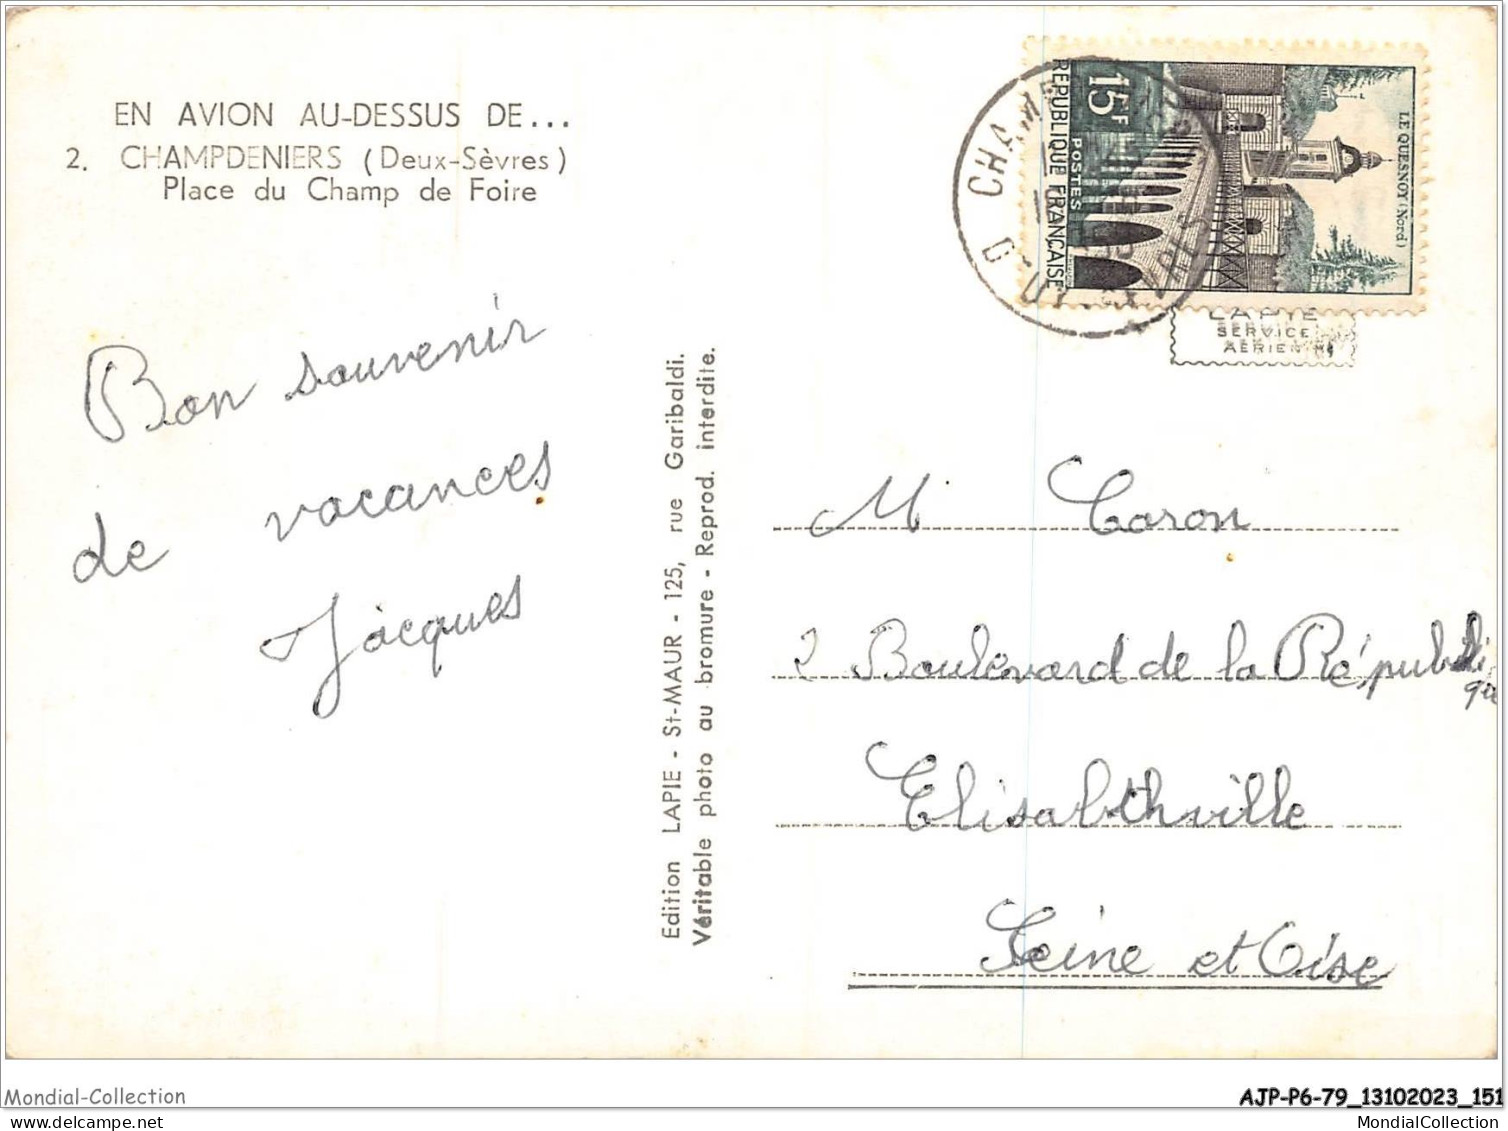 EN AVION AU-DESSUS DE...
2. CHAMPDENIERS (Deux-Sèvres)
Place du Champ de Foire
Bon souvenir
de vacances
Jacques
Edition LAPIE - St-MAUR - 125, rue Garibaldi.
Véritable photo au bromure - Reprod. interdite.
15F
POSTES
RÉPUBLIQUE FRANÇAISE
LE QUESNOY (Nord)
LAPIE
SERVICE
AÉRIEN
M Caron
2 Boulevard de la Républi
que
Elisabthville
Seine et Oise
Mondial-Collection
AJP-P6-79_13102023_151
www.mondial-collection.com
MondialCollection